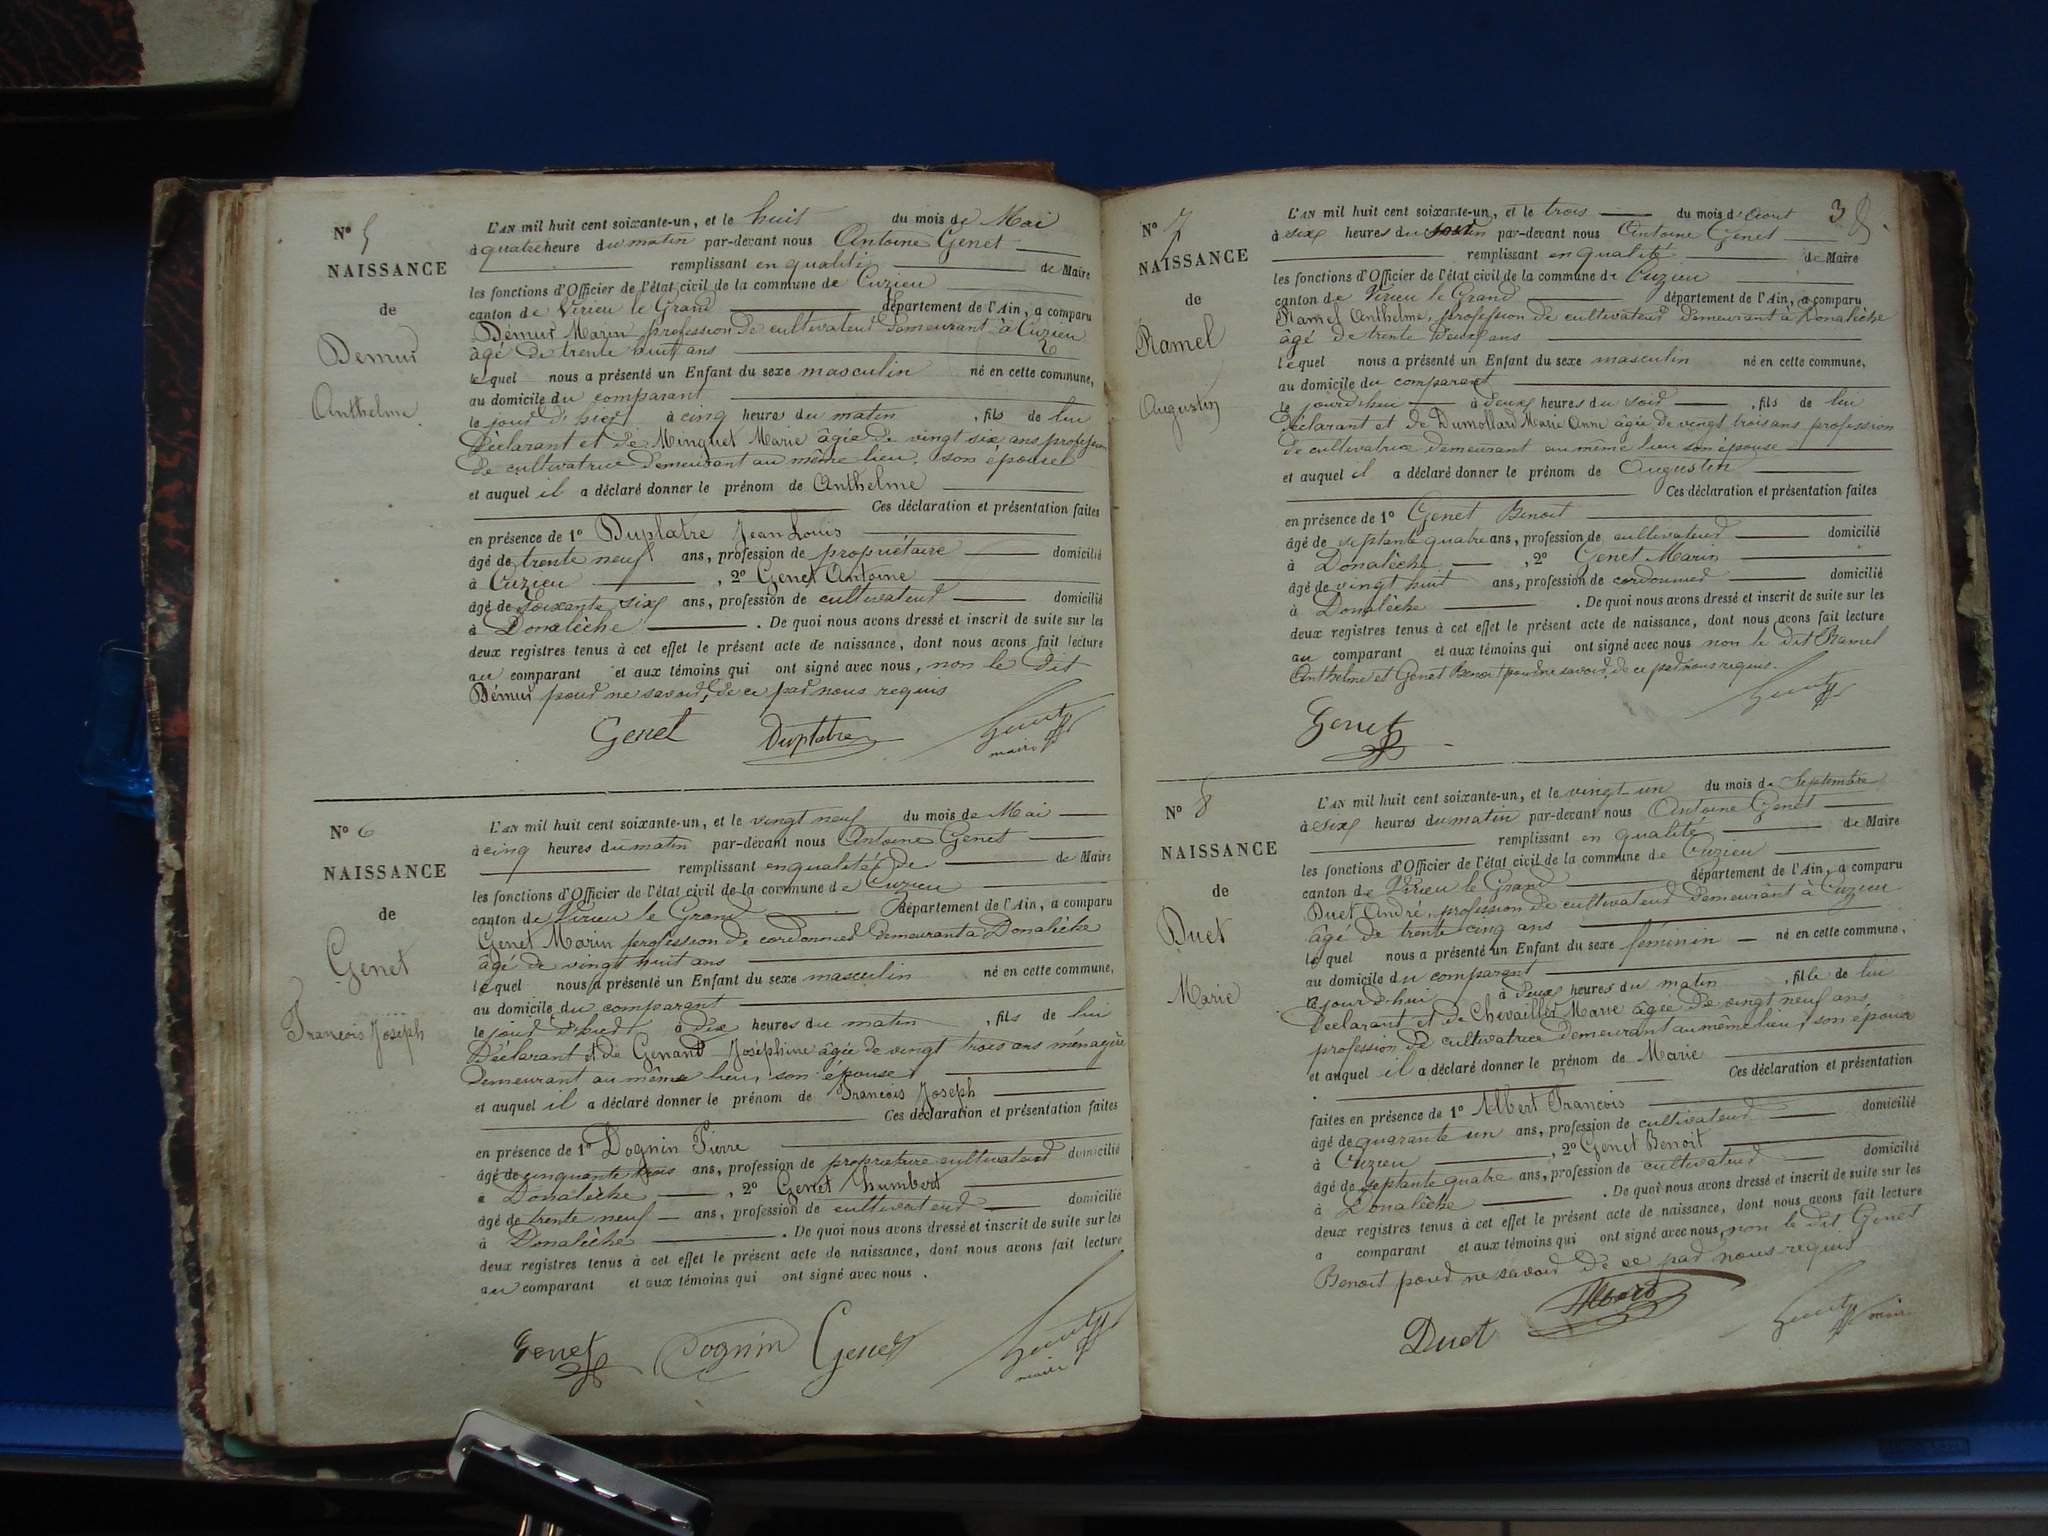 N° 5
NAISSANCE
de
Demur
Anthelme
L'AN mil huit cent soixante-un, et le huit du mois de Mai
à quatre heure du matin par-devant nous Antoine Genet
remplissant en qualité de Maire
les fonctions d'Officier de l'état civil de la commune de Cuzieu
canton de Virieu le Grand département de l'Ain, a comparu
Démur Marin profession de cultivateur demeurant à Cuzieu
âgé de trente huit ans
lequel nous a présenté un Enfant du sexe masculin né en cette commune,
au domicile du comparant
le jour d'hier à cinq heures du matin, fils de lui
Déclarant et de Minguet Marie âgée de vingt six ans profession
de cultivatrice demeurant au même lieu, son épouse
et auquel il a déclaré donner le prénom de Anthelme
Ces déclaration et présentation faites
en présence de 1° Duplatre Jean Louis
âgé de trente neuf ans, profession de propriétaire domicilié
à Cuzieu, 2° Genet Antoine
âgé de Soixante six ans, profession de cultivateur domicilié
à Donalèche. De quoi nous avons dressé et inscrit de suite sur les
deux registres tenus à cet effet le présent acte de naissance, dont nous avons fait lecture
au comparant et aux témoins qui ont signé avec nous, non le dit
Démur pour ne savoir, de ce par nous requis
Genet Duplatre Genet maire
N° 6
NAISSANCE
de
Genet
Francois Joseph
L'AN mil huit cent soixante-un, et le vingt neuf du mois de Mai
à cinq heures du matin par-devant nous Antoine Genet
remplissant en qualité de de Maire
les fonctions d'Officier de l'état civil de la commune de Cuzieu
canton de Virieu le Grand département de l'Ain, a comparu
Genet Marin profession de cordonnier demeurant a Donalèche
âgé de vingt huit ans
lequel nous a présenté un Enfant du sexe masculin né en cette commune,
au domicile du comparant
le jour d'hier à dix heures du matin, fils de lui
Déclarant et de Genand Joséphine âgée de vingt trois ans ménagère
demeurant au même lieu, son épouse
et auquel il a déclaré donner le prénom de Francois Joseph
Ces déclaration et présentation faites
en présence de 1° Dognin Pierre
âgé de cinquante trois ans, profession de propriétaire cultivateur domicilié
à Donalèche, 2° Genet humbert
âgé de trente neuf ans, profession de cultivateur domicilié
à Donalèche. De quoi nous avons dressé et inscrit de suite sur les
deux registres tenus à cet effet le présent acte de naissance, dont nous avons fait lecture
au comparant et aux témoins qui ont signé avec nous.
Genet Dognin Genet Genet maire
3
N° 7
NAISSANCE
de
Ramel
Augustin
L'AN mil huit cent soixante-un, et le trois du mois d'Aout
à six heures du par-devant nous Antoine Genet
remplissant en qualité de Maire
les fonctions d'Officier de l'état civil de la commune de Cuzieu
canton de Virieu le Grand département de l'Ain, a comparu
Ramel Anthelme, profession de cultivateur demeurant à Donalèche
âgé de trente deux ans
lequel nous a présenté un Enfant du sexe masculin né en cette commune,
au domicile du comparant
le jourd'hui à deux heures du soir, fils de lui
Déclarant et de Dumollard Marie Anne âgée de vingt trois ans profession
de cultivatrice demeurant au même lieu son épouse
et auquel il a déclaré donner le prénom de Augustin
Ces déclaration et présentation faites
en présence de 1° Genet Benoit
âgé de septante quatre ans, profession de cultivateur domicilié
à Donalèche, 2° Genet Marin
âgé de vingt huit ans, profession de cordonnier domicilié
à Donalèche. De quoi nous avons dressé et inscrit de suite sur les
deux registres tenus à cet effet le présent acte de naissance, dont nous avons fait lecture
au comparant et aux témoins qui ont signé avec nous non le dit Ramel
Anthelme et Genet Benoit pour ne savoir, de ce par nous requis.
Genet Genet
N° 8
NAISSANCE
de
Duet
Marie
L'AN mil huit cent soixante-un, et le vingt un du mois de Septembre
à six heures du matin par-devant nous Antoine Genet
remplissant en qualité de Maire
les fonctions d'Officier de l'état civil de la commune de Cuzieu
canton de Virieu le Grand département de l'Ain, a comparu
Duet André, profession de cultivateur demeurant à Cuzieu
âgé de trente cinq ans
lequel nous a présenté un Enfant du sexe féminin né en cette commune,
au domicile du comparant
le jourd'hui à deux heures du matin, fille de lui
Déclarant et de Chevailler Marie âgée de vingt neuf ans,
profession de cultivatrice demeurant au même lieu, son épouse
et auquel il a déclaré donner le prénom de Marie
Ces déclaration et présentation
faites en présence de 1° Albert Francois
âgé de quarante un ans, profession de cultivateur domicilié
à Cuzieu, 2° Genet Benoit
âgé de septante quatre ans, profession de cultivateur domicilié
à Donalèche. De quoi nous avons dressé et inscrit de suite sur les
deux registres tenus à cet effet le présent acte de naissance, dont nous avons fait lecture
a comparant et aux témoins qui ont signé avec nous, non le dit Genet
Benoit pour ne savoir de ce par nous requis
Albert
Duet Genet maire